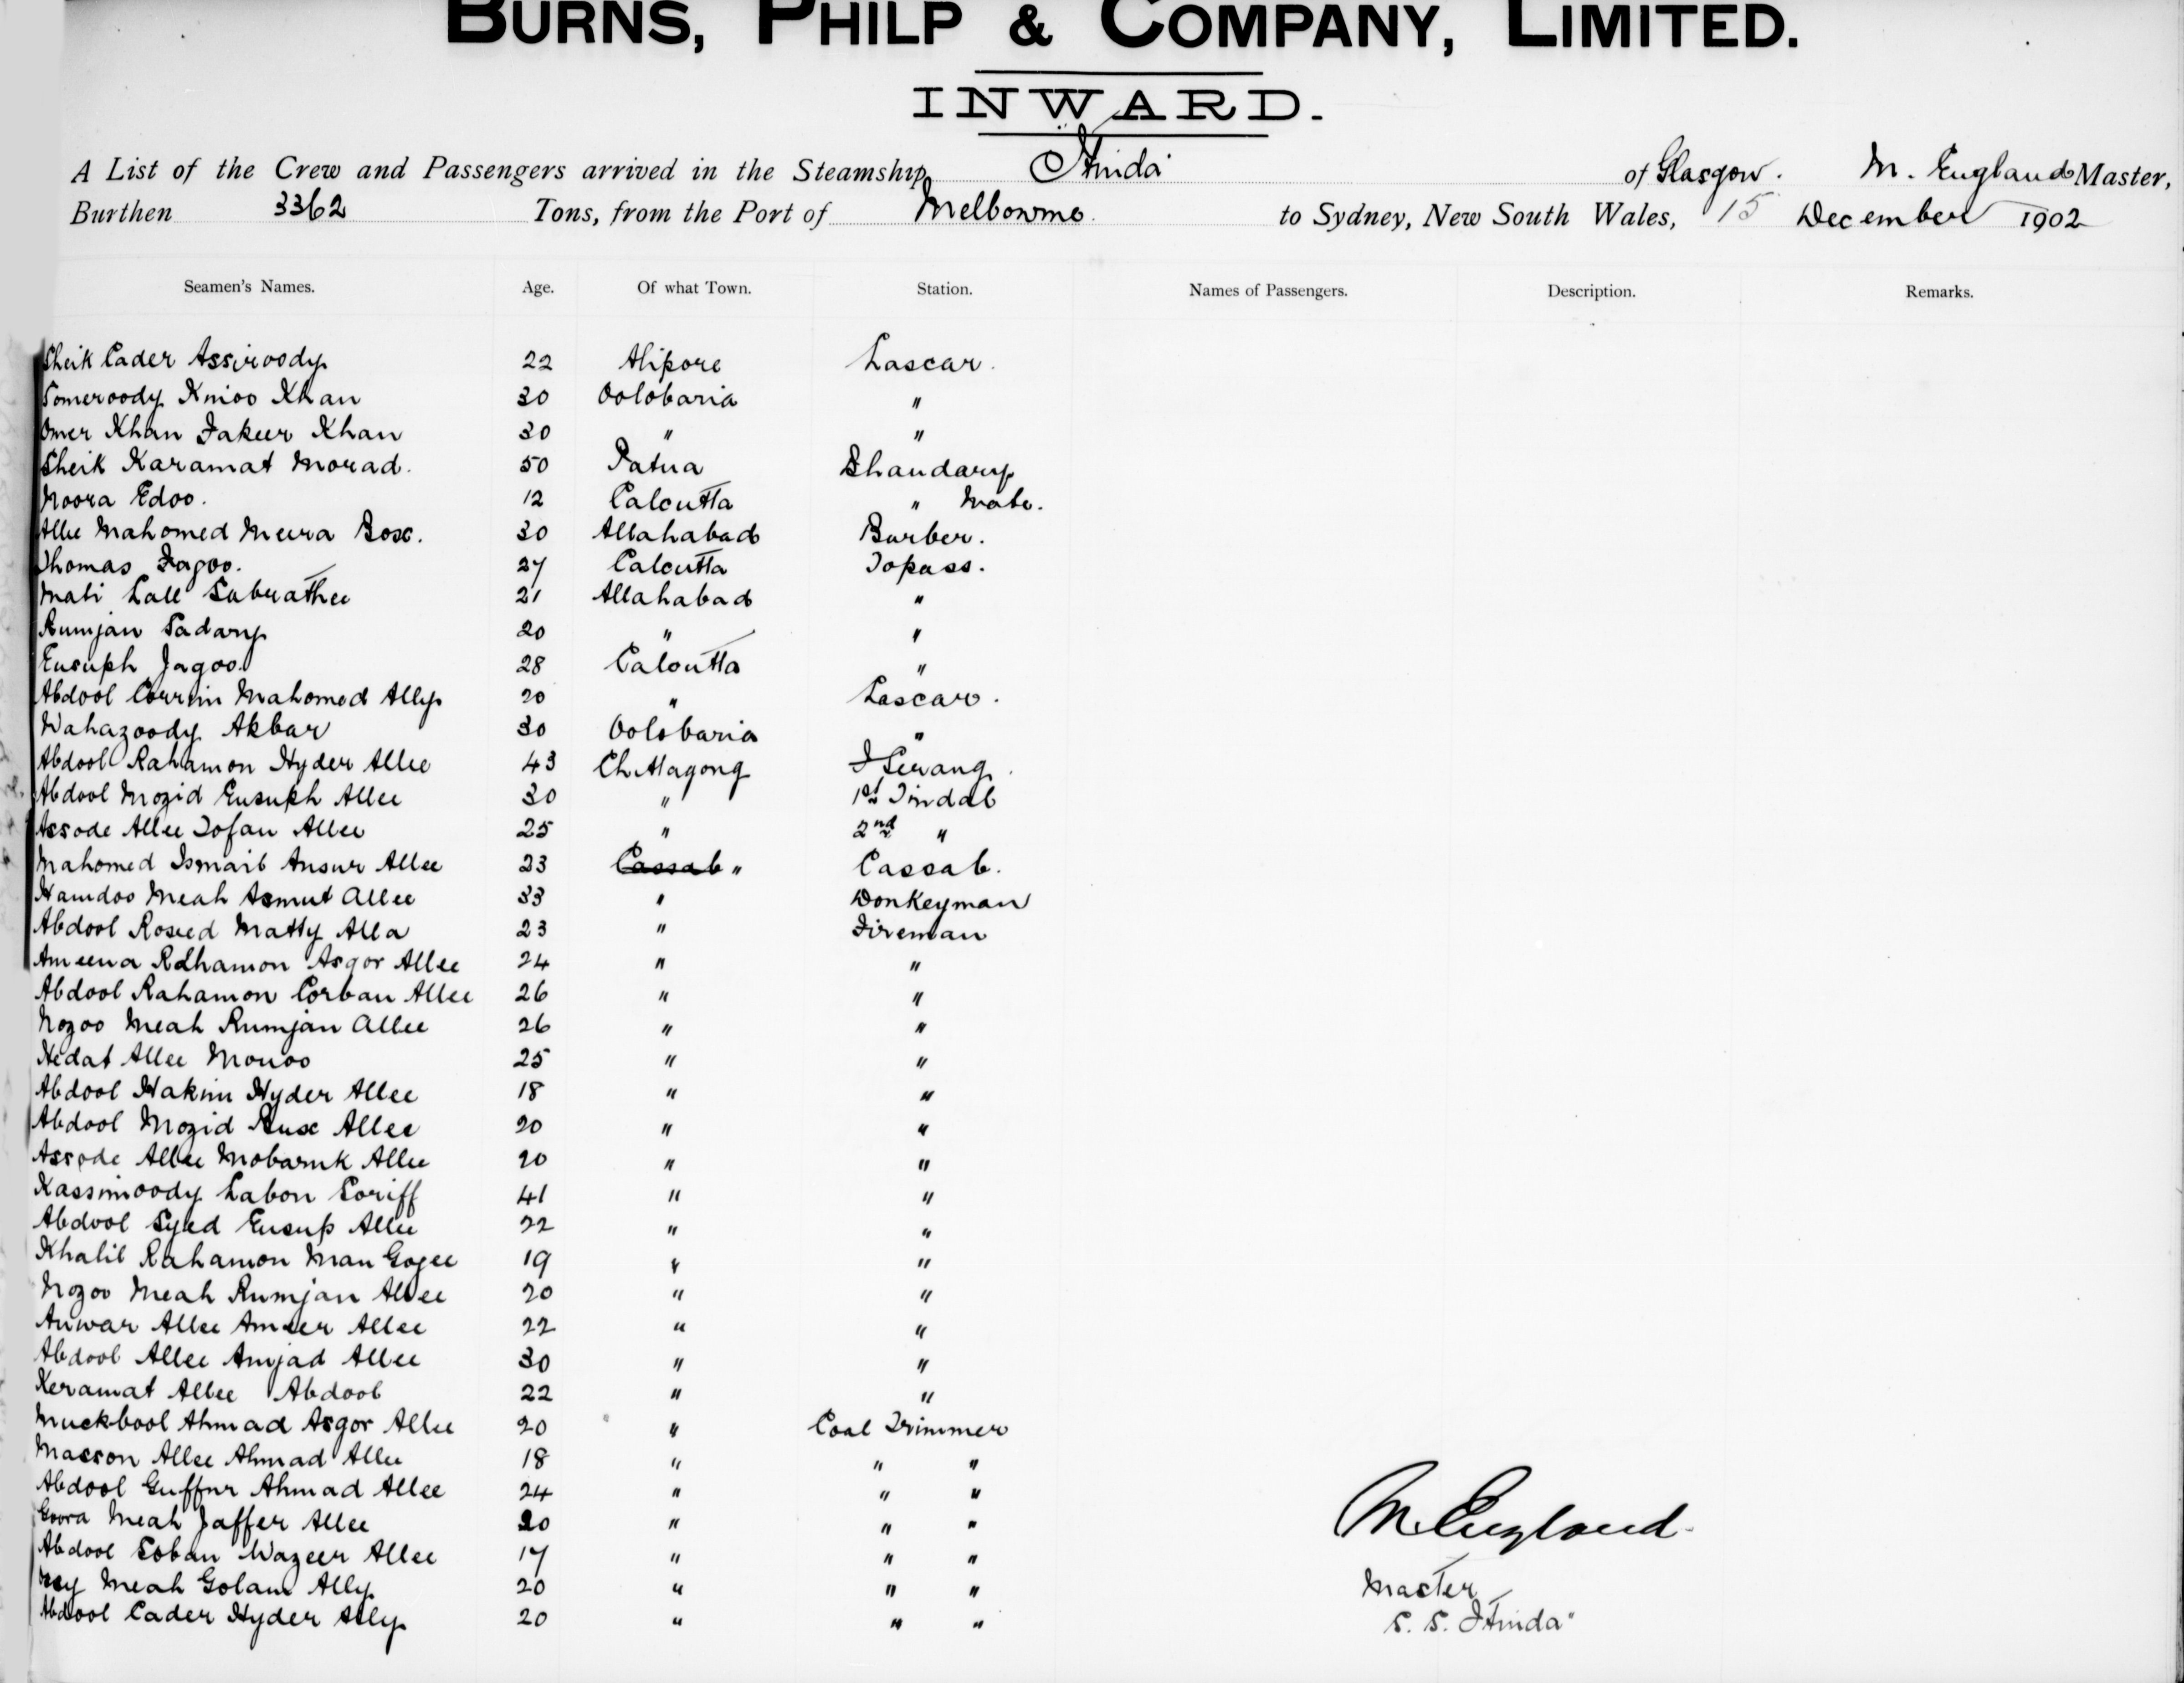 BURNS, PHILP & COMPANY, LIMITED.
INWARD.
A List of the Crew and Passengers arrived in the Steamship Itinda of Glasgow. M. England Master,
Burthen 3362 Tons, from the Port of Melbourne to Sydney, New South Wales, 15 December 1902
Seamen's Names. Age. Of what Town. Station. Names of Passengers. Description. Remarks.
Sheik Cader Assiroody 22 Alipore Lascar.
Someroody Kmoo Khan 30 Oolobaria "
Omer Khan Fakeer Khan 30 " "
Sheik Karamat Morad. 50 Patna Bhandary
Noora Edoo. 12 Calcutta " Mate.
Allee Mahomed Meera Box. 30 Allahabad Barber.
Thomas Fagoo. 27 Calcutta Topass.
Mati Lall Saburathee 21 Allahabad "
Rumjan Sadary 20 " "
Eusuph Jagoo. 28 Calcutta "
Abdool Corrim Mahomed Ally 20 " Lascar.
Wahazoody Akbar 30 Oolobaria "
Abdool Rahamon Hyder Allee 43 Chittagong F Serang.
Abdool Mozid Eusuph Allee 30 " 1st Tindal
Assode Allee Tofan Allee 25 " 2nd "
Mahomed Ismail Ansur Allee 23 Cassab " Cassab.
Hamdoo Meah Asmut Allee 33 " Donkeyman
Abdool Roseed Matty Alla 23 " Fireman
Ameena Rahamon Asgor Allee 24 " "
Abdool Rahamon Corban Allee 26 " "
Nozoo Meah Rumjan Allee 26 " "
Hedat Allee Monoo 25 " "
Abdool Hakim Hyder Allee 18 " "
Abdool Mozid Buse Allee 20 " "
Assode Allee Mobaruk Allee 20 " "
Kassimoody Labon Soriff 41 " "
Abdool Syed Eusup Allee 22 " "
Khalil Rahamon Man Gogee 19 " "
Nozoo Meah Rumjan Allee 20 " "
Anwar Allee Ameer Allee 22 " "
Abdool Allee Amjad Allee 30 " "
Keramat Allee Abdool 22 " "
Muckbool Ahmad Asgor Allee 20 " Coal Trimmer
Masson Allee Ahmad Allee 18 " " "
Abdool Guffur Ahmad Allee 24 " " "
Goora Meah Jaffer Allee 20 " " "
Abdool Soban Wazeer Allee 17 " " "
Meah Golam Ally 20 " " "
Abdool Cader Hyder Ally 20 " " "
M England
Master
S. S. Itinda"